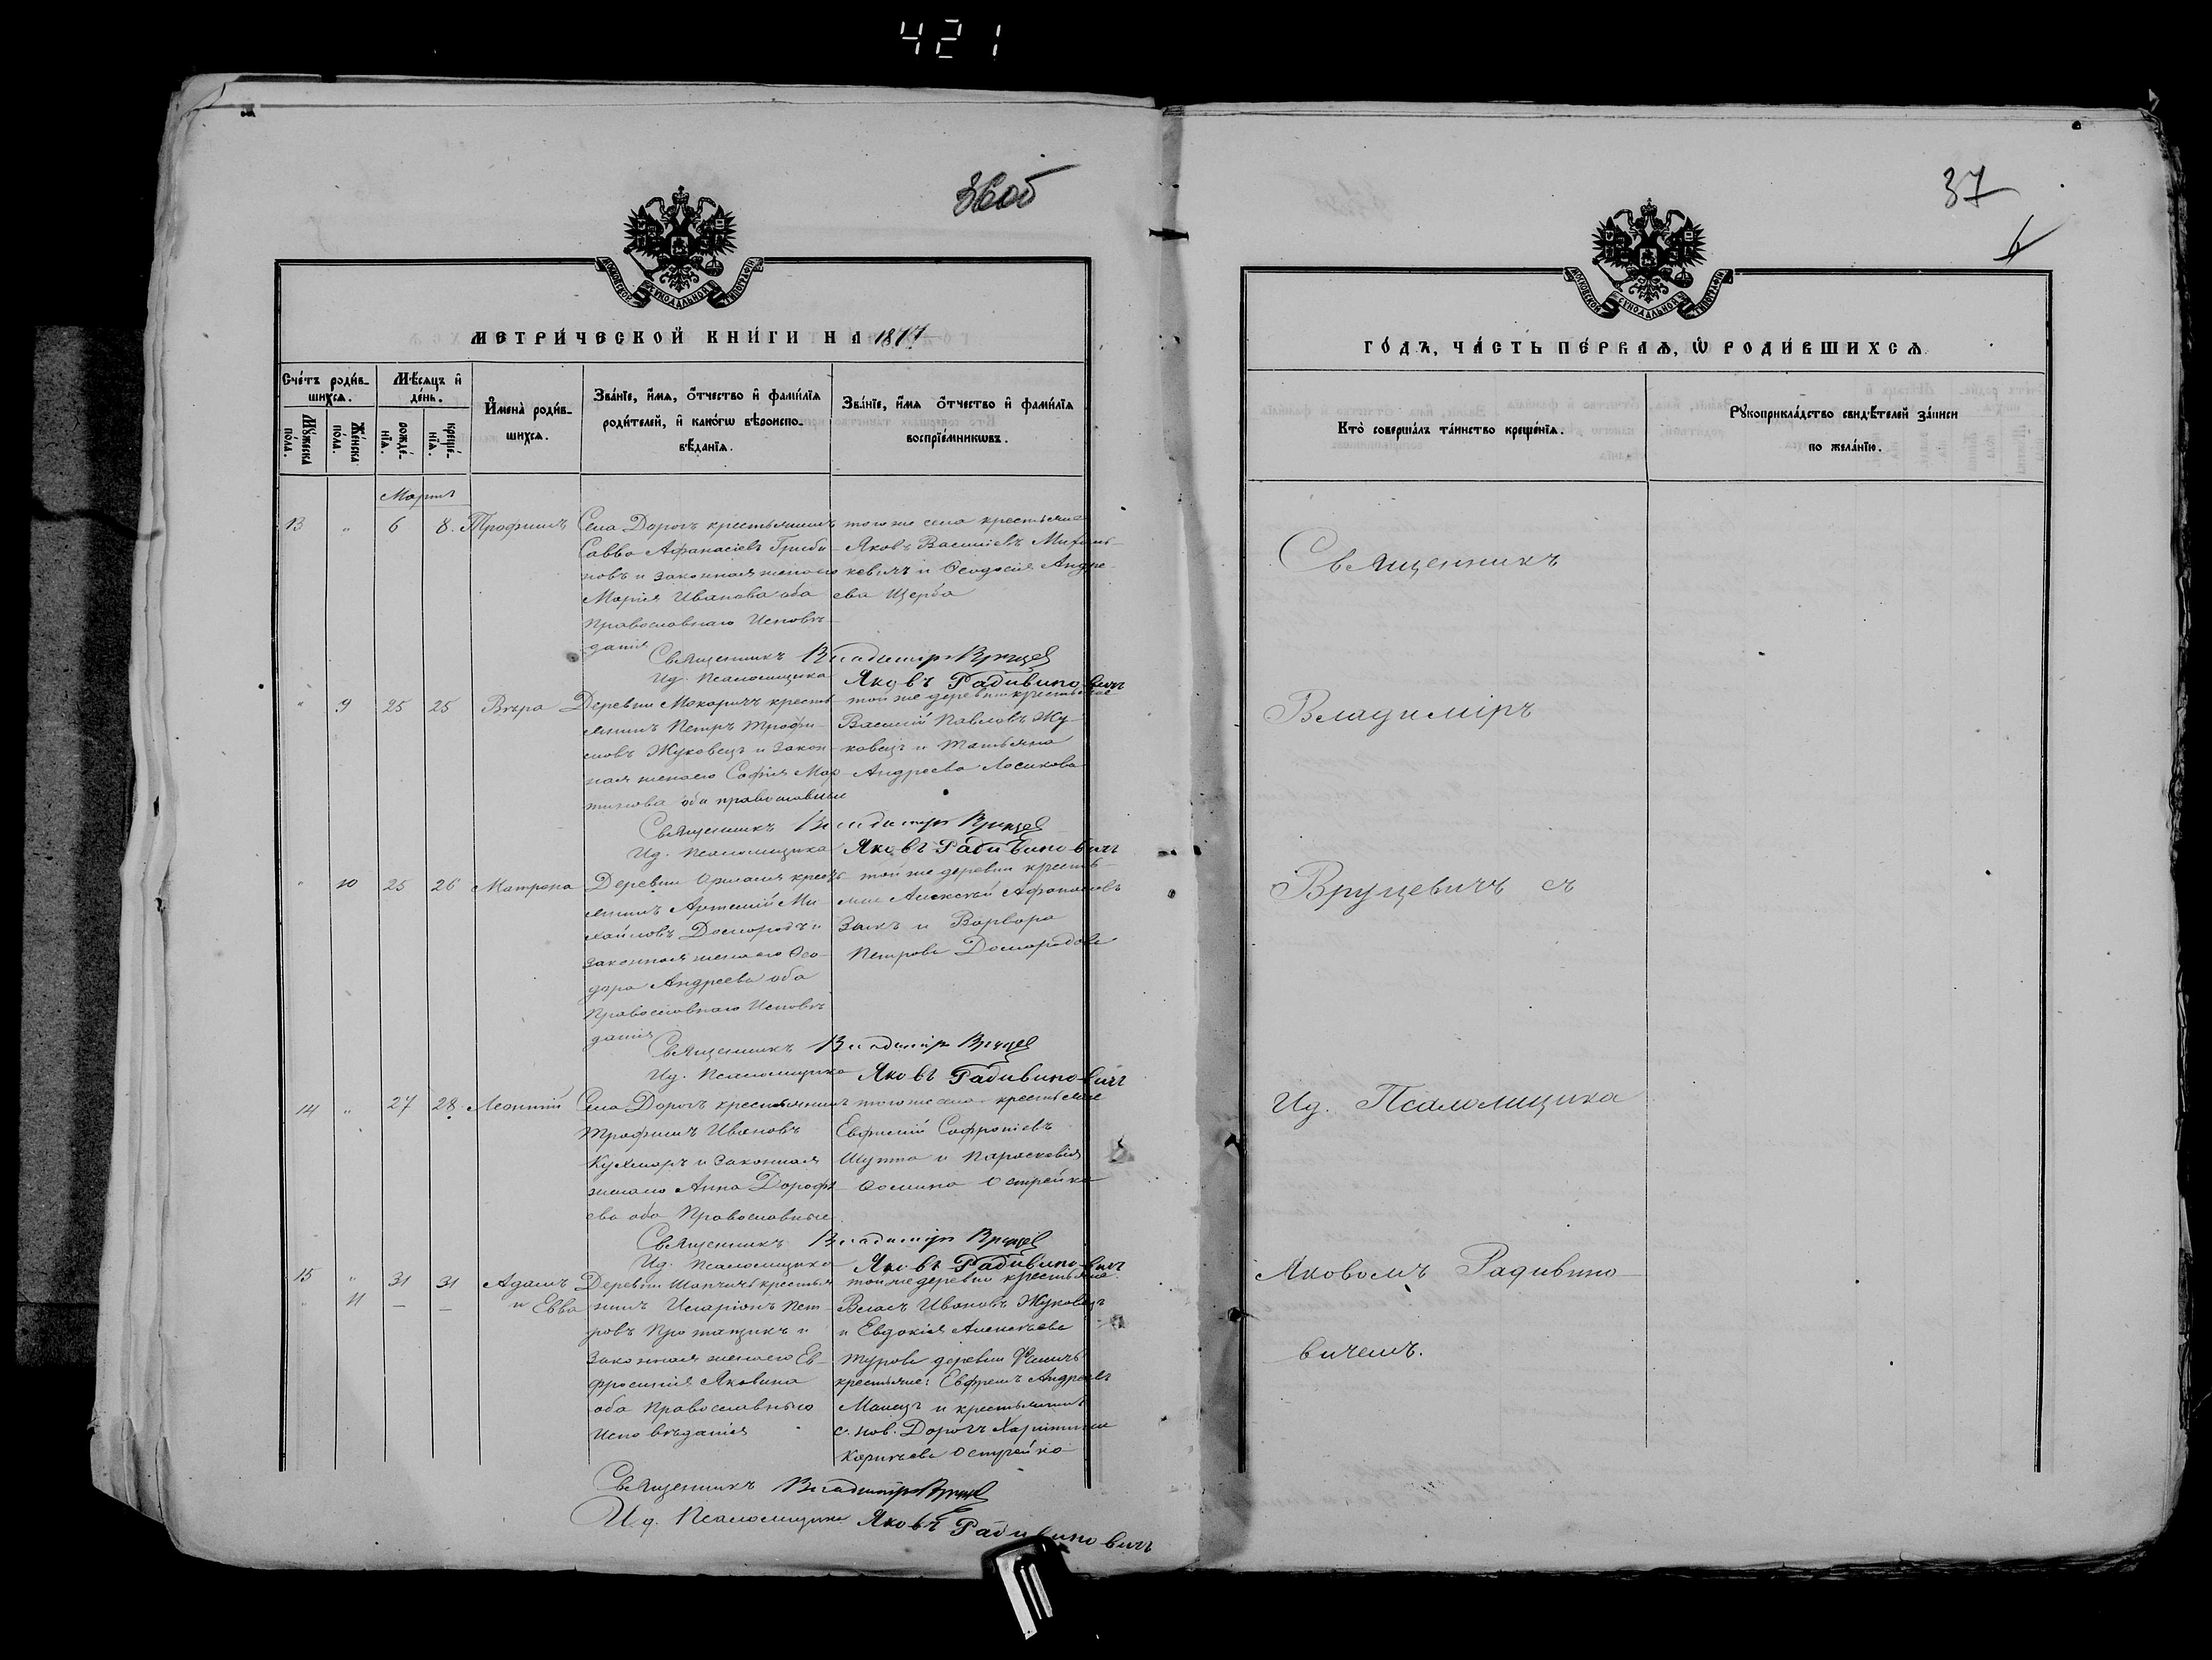 421
36об
МОСКОВСКОЙ СѴНОДАЛЬНОЙ ТИПОГРАФІИ
МЕТРИ́ЧЕСКОЙ КНИ́ГИ НА 1877
Сче́тъ роди́в-
шихся.
Мꙋ́жеска
пола.
Же́нска
по́ла.
Мѣ́сяцъ и҆
де́нь.
рожде́-
нїѧ.
креще́-
нїѧ.
И҆мена̀ роди́в-
шихсѧ.
Зва́нїе, и҆́мѧ, ѻ҆́тчество и҆ фами́лїѧ
роди́телей, и҆ како́гѡ вѣроиспо-
вѣ́данїѧ.
Зва́нїе, и҆́мѧ ѻ҆́тчество и҆ фами́лїѧ
воспрїе́мникѡвъ.
Мартъ
13 " 6 8. Трофимъ
Села Дорогъ крестьянинъ
Савва Афанасіевъ Гриби-
новъ и законная жена его
Марія Иванова оба
Православнаго Исповѣ-
данія
того же села крестьяне
Яковъ Василіевъ Михаль-
кевичъ и Ѳеодосія Андре-
ева Щерба
Священникъ Владиміръ Вруцев
Ид. Псаломщика Яковъ Радивиновичъ
" 9 25 25 Вѣра
Деревни Макаричъ кресть-
янинъ Петръ Трофи-
мовъ Жуковецъ и закон-
ная жена его Софія Мар-
тинова оба православные
той же деревни крестьяне
Василій Павловъ Жу-
ковецъ и Татьяна
Андреева Лосикова
Священникъ Владиміръ Вруцев
Ид. Псаломщика Яковъ Радивиновичъ
" 10 25 26 Матрона
Деревни кресть-
янинъ Артемій Ми-
хайловъ Доморадъ и
законная жена его Ѳео-
дора Андреева оба
Православнаго Исповѣ
данія
той же деревни кресть-
яне Алексѣй Афанасіевъ
Заякъ и Варвара
Петрова Доморадова
Священникъ Владиміръ Вруцев
Ид. Псаломщика Яковъ Радивиновичъ
14 " 27 28 Леонтій
Села Дорогъ крестьянинъ
Трофимъ Ивановъ
Кухмаръ и законная
жена его Анна Дорофѣ-
ева оба Православные
того же села крестьяне
Евфимій Софроніевъ
Шупта и Параскевія
Ѳомина Острейко
Священникъ Владиміръ Вруцев
Ид. Псаломщика Яковъ Радивиновичъ
15 " 31 31 Адамъ
" 11 – – и Евва
Деревни Шапчичъ крестья
нинъ Иларіонъ Пет-
ровъ Протащикъ и
законная жена его Ев-
фросинія Яковина
оба Православнаго
Исповѣданія
той же деревни крестьяне:
Власъ Ивановъ Жуковецъ
и Евдокія Алексѣева
Турова деревни
крестьяне: Евфремъ Андреевъ
Манецъ и крестьянинъ
с. нов. Дорогъ Харитина
Карнѣева Острейко
Священникъ Владиміръ Вруцев
Ид. Псаломщика Яковъ Радивиновичъ
37
МОСКОВСКОЙ СѴНОДАЛЬНОЙ ТИПОГРАФІИ
ГО́ДЪ, ЧА́СТЬ ПЕ́РВАѦ, Ѡ҆ РОДИ́ВШИХСѦ
Кто̀ соверша́лъ та́инство креще́нїѧ.
Рꙋкоприкла́дство свидѣ́телей за́писи
по жела́нїю.
Священникъ
Владиміръ
Вруцевичъ съ
Ид. Псаломщика
Яковомъ Радивино-
вичемъ.